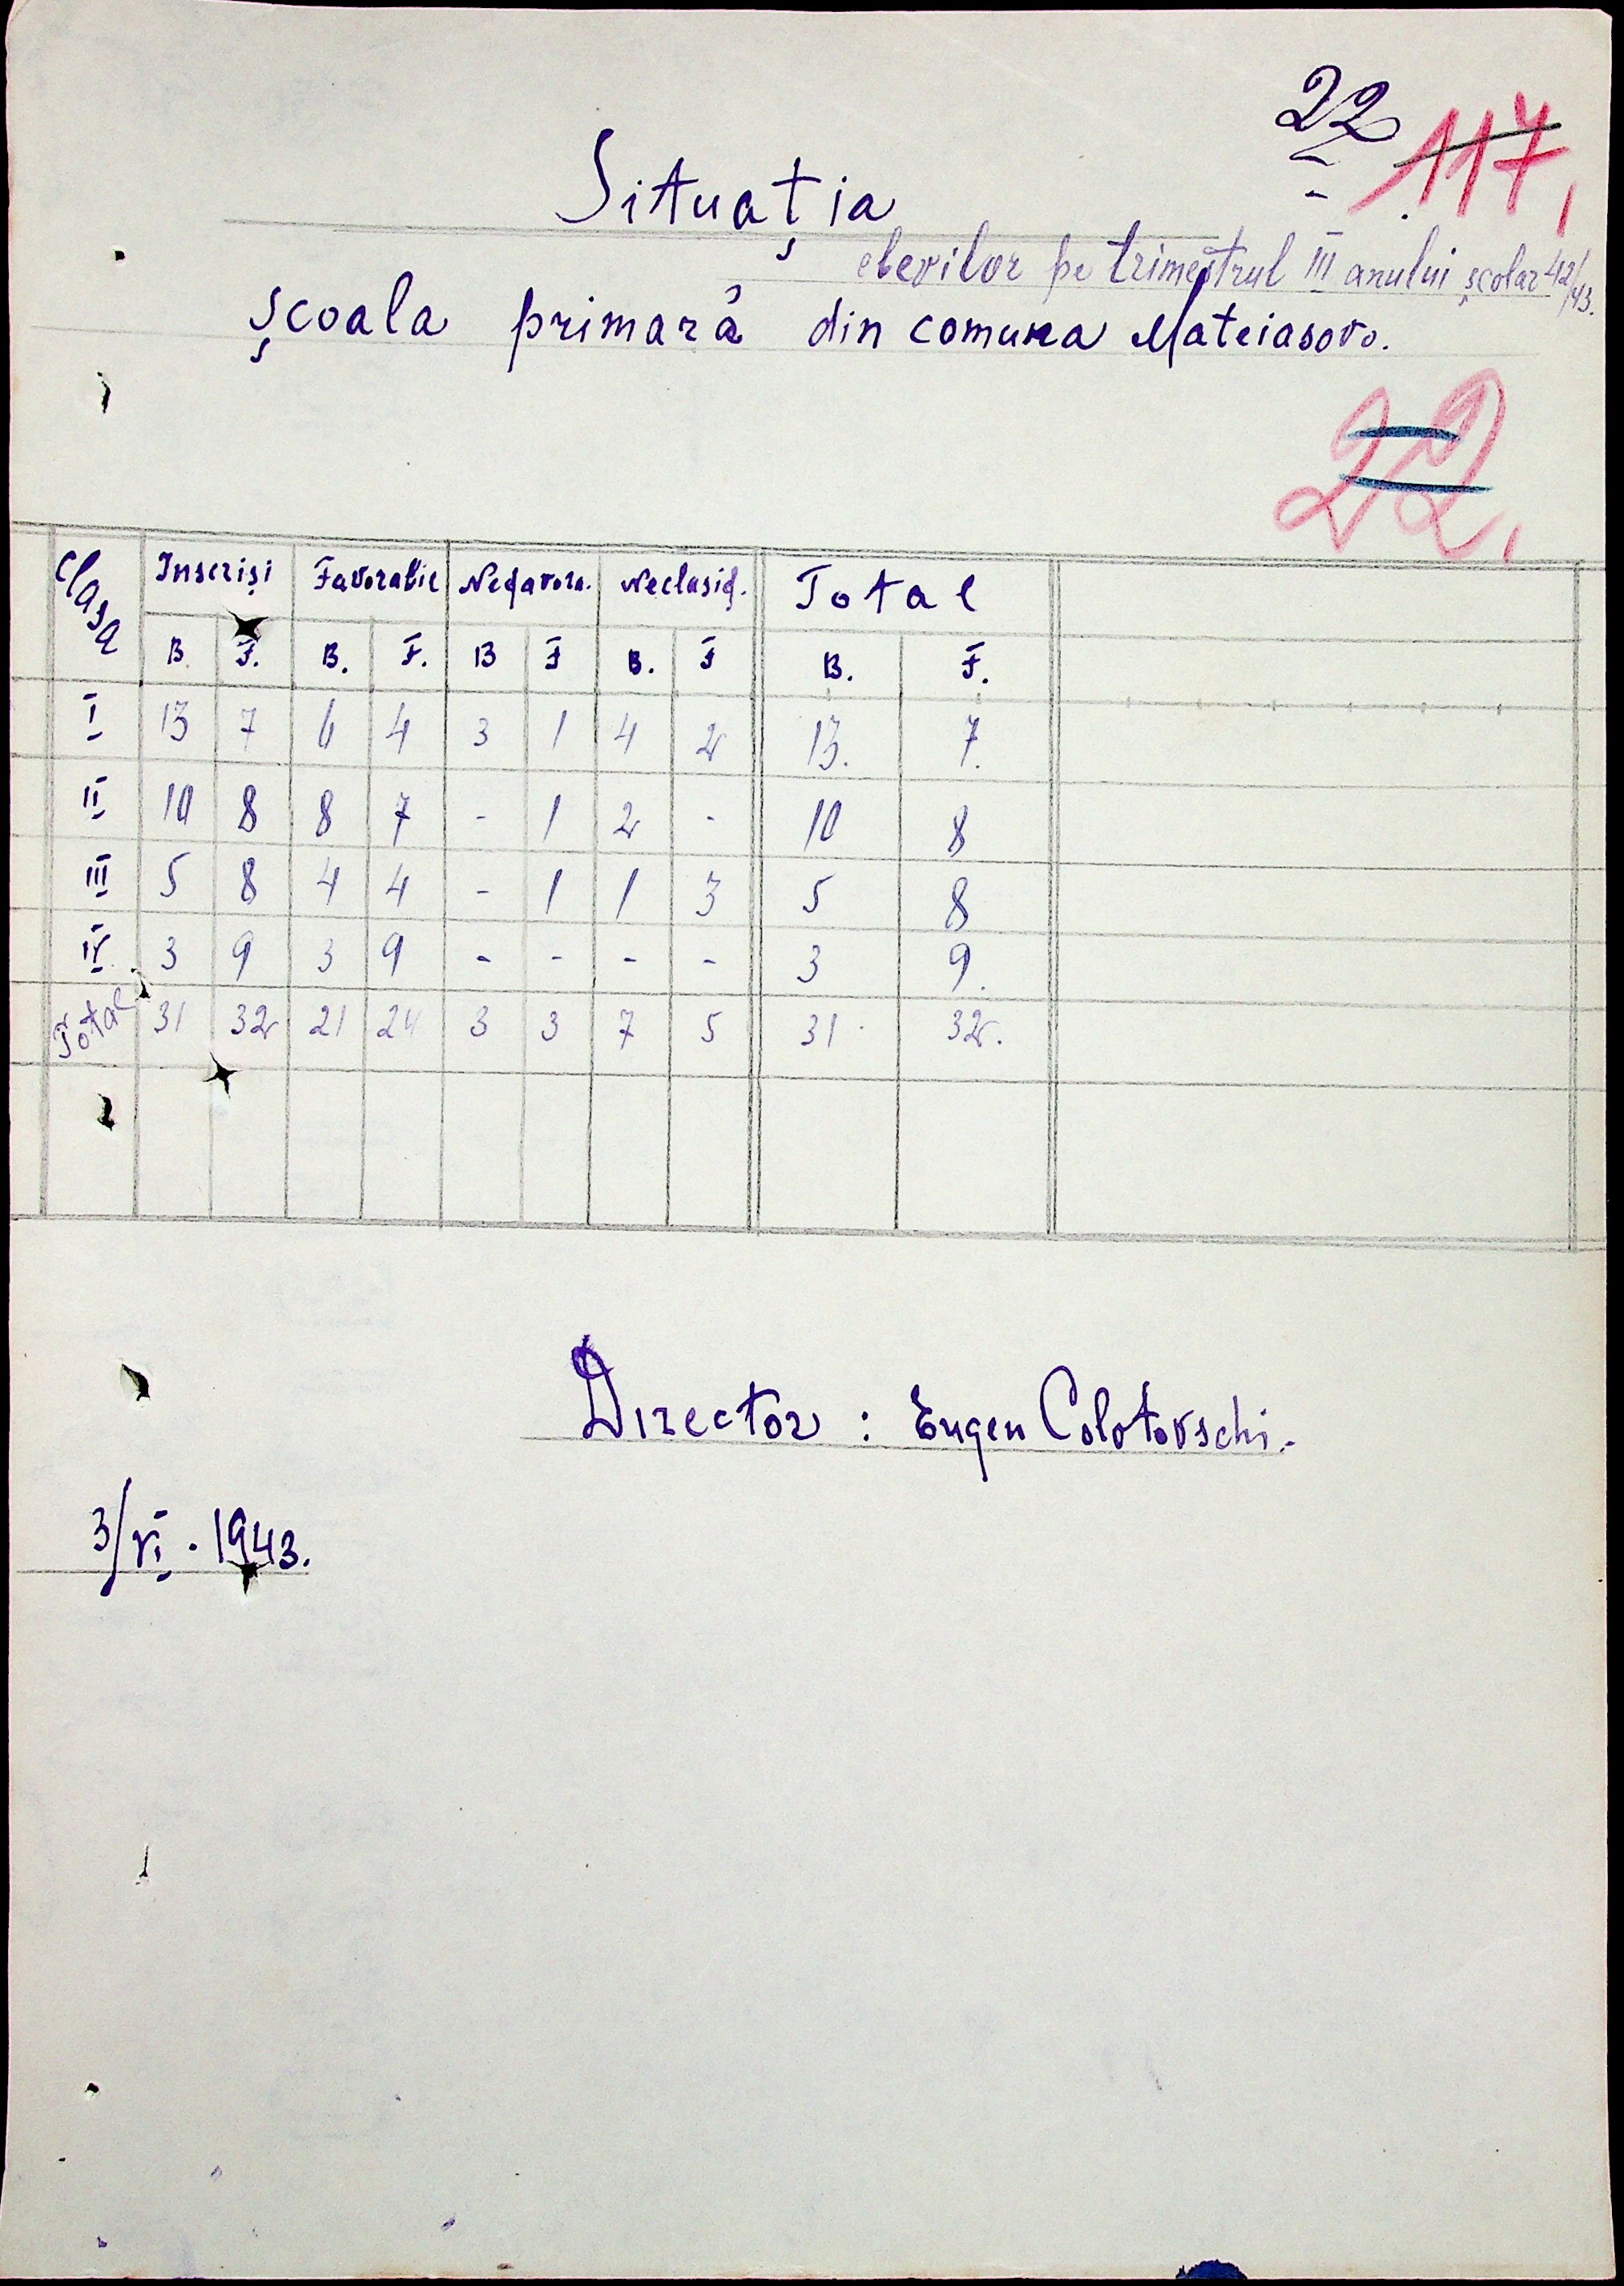 22
117,
Situaţia
elevilor pe trimestrul III anului şcolar 42/43.
şcoala primară din comuna Mateiasovo.
22,
Clasa Inscrişi Favorabil Nefavora. Neclasif. Total
B. F. B. F. B F B. F B. F.
I 13 7 6 4 3 1 4 2 13. 7.
II 10 8 8 7 - 1 2 - 10 8
III 5 8 4 4 - 1 1 3 5 8
IV 3 9 3 9 - - - - 3 9.
Total 31 32 21 24 3 3 7 5 31 32.
Director : Eugen Colotovschi.-
3/VI. 1943.